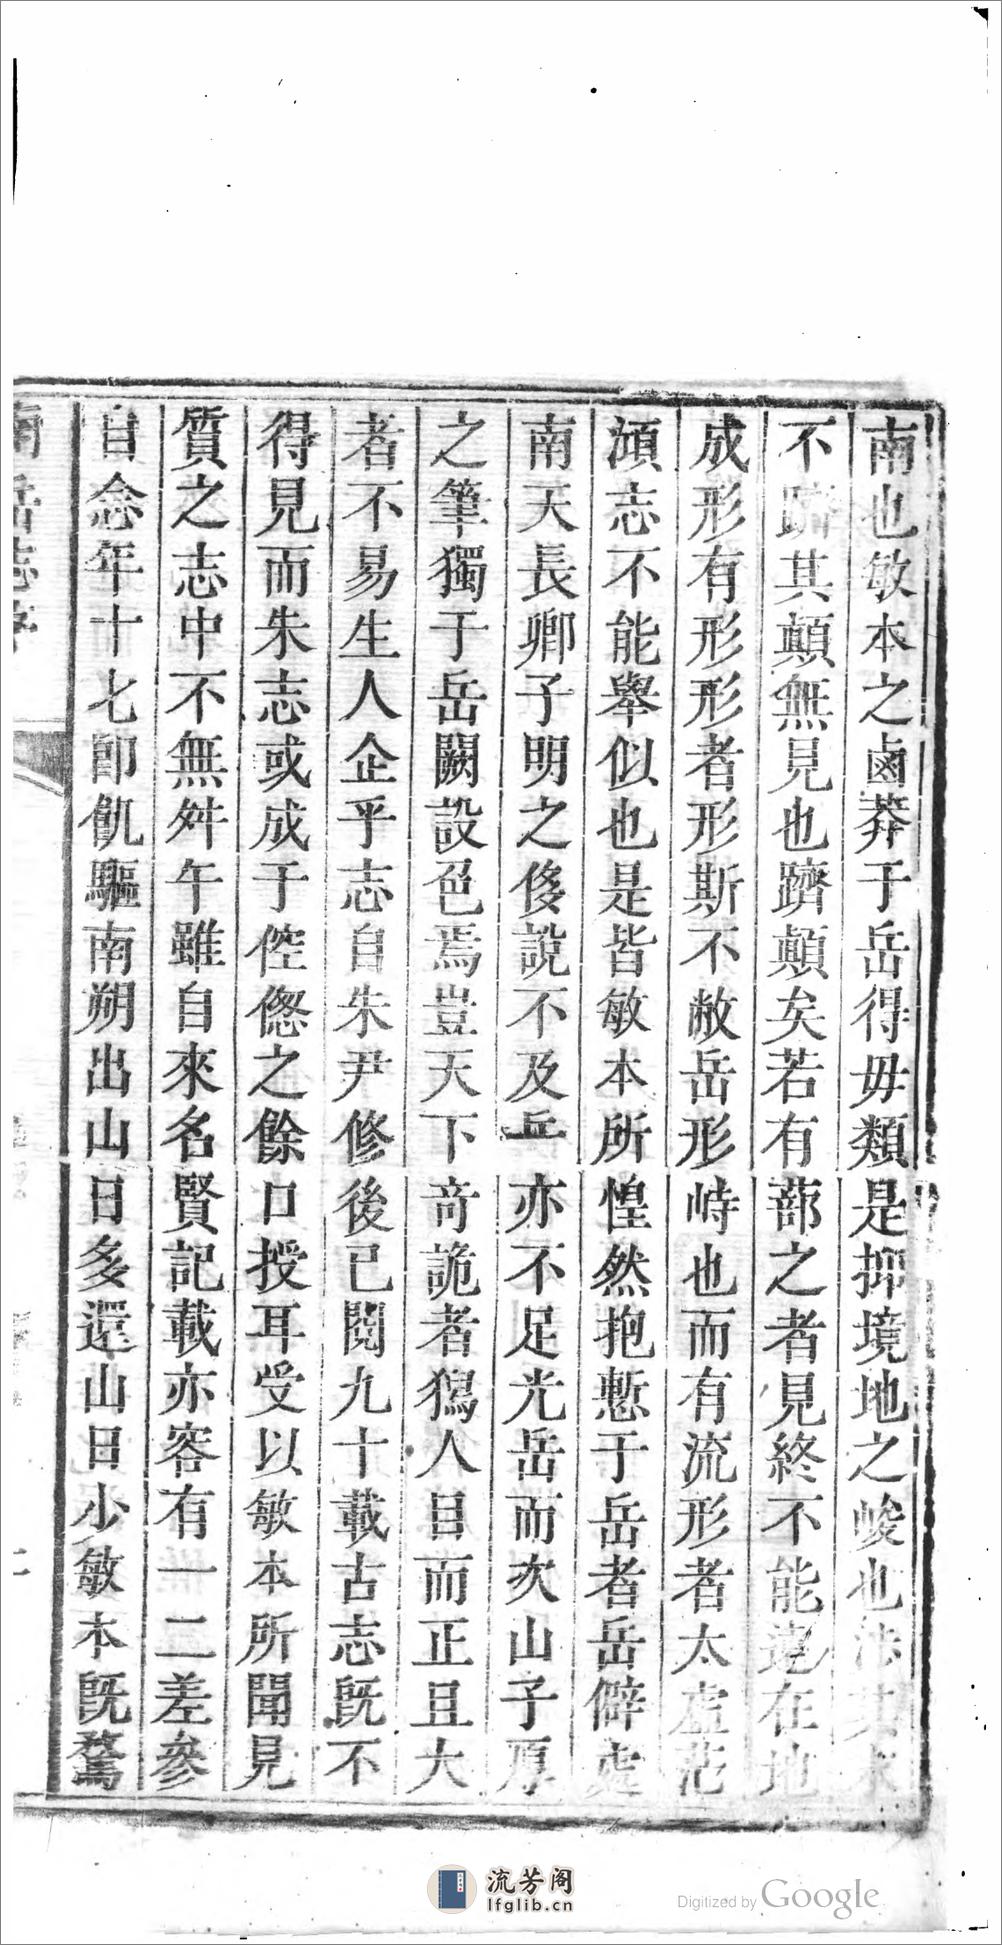 南也敏本之鹵莽于岳得毋類是抑境地之峻也涉其
不躋其顛無見也躋顛矣若有蔀之者見終不能在地
成形有形形者形斯不敝岳形峙也而有流形者太虛茫
澒志不能舉似也是皆敏本所惶然抱慙于岳者岳僻處
南天長卿子明之後說不及丘亦不足光岳而次山子厚
之筆獨于岳闕設色焉豈天下奇詭者獨人目而正且大
者不易生人企乎志自朱尹修後已閱九十載古志既不
得見而朱志或成于倥偬之餘口授耳受以敏本所聞見
質之志中不無舛午雖自來名賢記載亦容有一二差參
自念年十七卽飢驅南朔出山日多還山日少敏本既騖
南岳志序
二
流芳阁
lfglib.cn
Digitized by Google